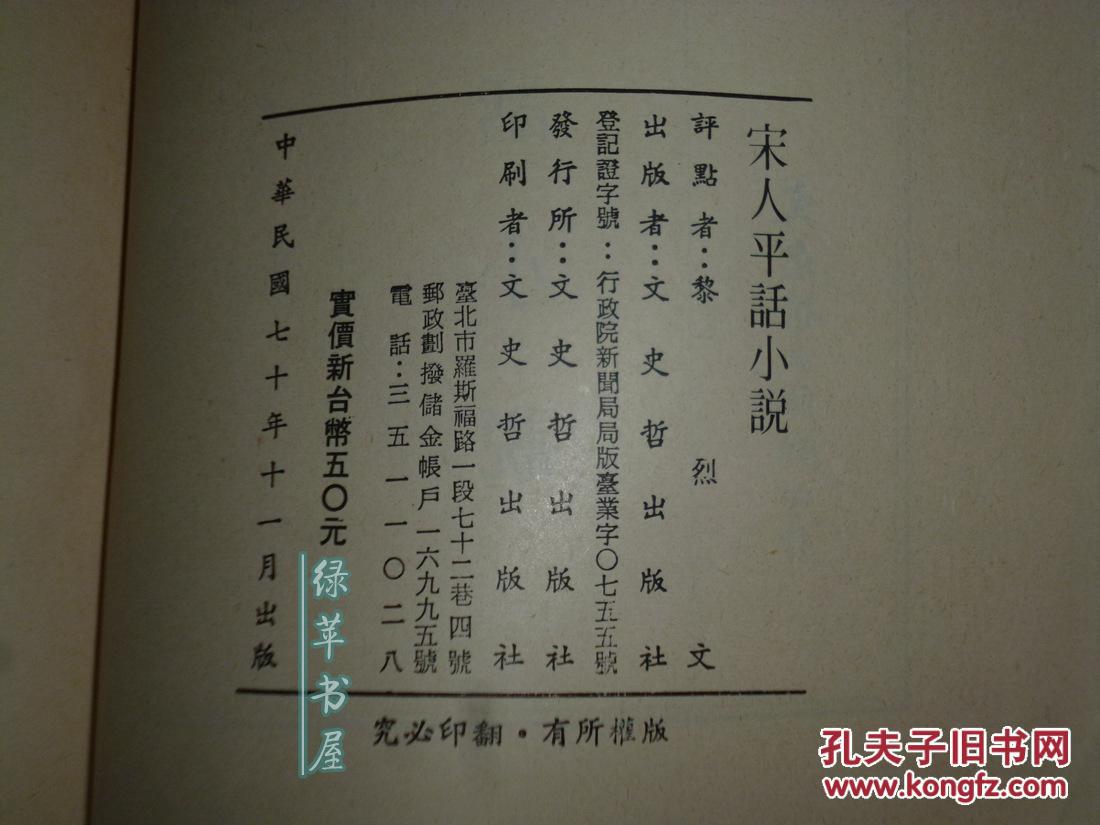 宋人平話小説
評點者：黎烈文
出版者：文史哲出版社
登記證字號：行政院新聞局局版臺業字〇七五五號
發行所：文史哲出版社
印刷者：文史哲出版社
臺北市羅斯福路一段七十二巷四號
郵政劃撥儲金帳戶一六九九五號
電話：三五一一〇二八
實價新台幣五〇元
中華民國七十年十一月出版
究必印翻・有所權版
绿苹书屋
孔夫子旧书网
www.kongfz.com